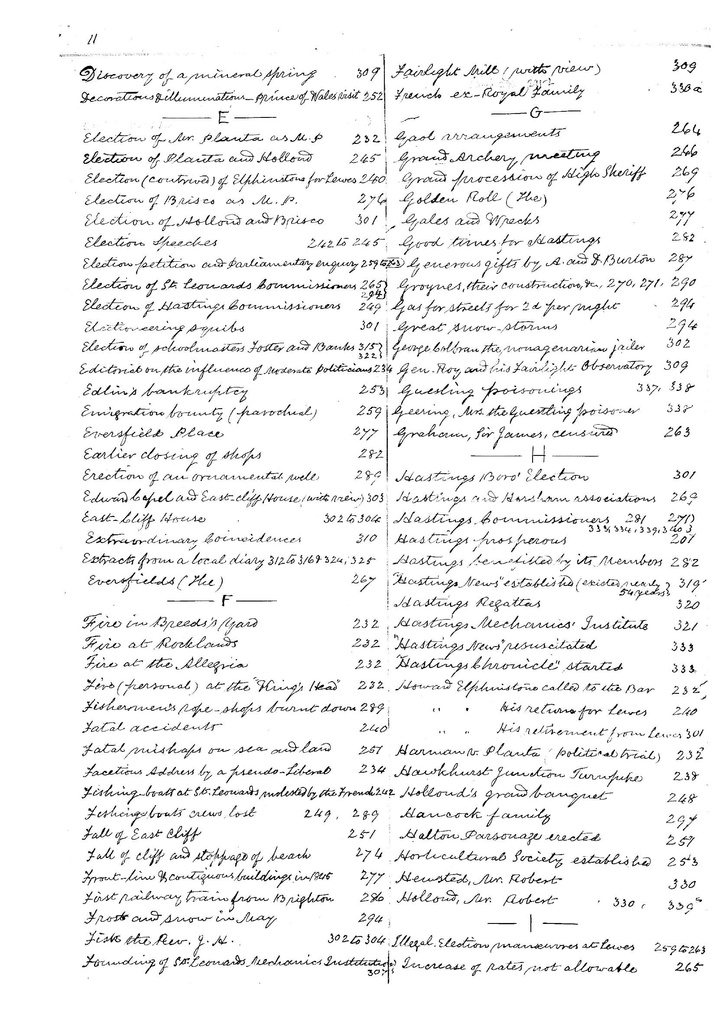 11
Discovery of a mineral spring 309
Decorations & illuminations – Prince of Wales visit 252
E
Election of Mr. Planta as M.P 232
Election of Planta and Hollond 245
Election (contrived) of Elphinstone for Lewes 240
Election of Brisco as M.P. 276
Election of Hollond and Brisco 301
Election Speeches 242 to 245
Election petition and Parliamentary enquiry 259 to 263
Election of St. Leonards Commissioners 265
294
Election of Hastings Commissioners 249
Electioneering squibs 301
Election of schoolmasters Foster and Banks 315
322
Editorial on the influence of Moderate Politicians 234
Edlin's bankruptcy 253
Emigration bounty (parochial) 259
Eversfield Place 277
Earlier closing of shops 282
Erection of an ornamental well 289
Edward Capel and East-cliff House (with view) 303
East-Cliff House 302 to 304
Extraordinary Coincidences 310
Extracts from a local diary 312 to 316 & 324, 325
Eversfields (The) 267
F
Fire in Breeds's Yard 232
Fire at Rocklands 232
Fire at the Allegria 232
Fire (personal) at the "King's Head" 232
Fishermen's rope-shops burnt down 289
Fatal accidents 240
Fatal mishaps on sea and land 251
Facetious Address by a pseudo-Liberal 234
Fishing-boats at St. Leonards molested by the French 242
Fishing boats crews, lost 249, 289
Fall of East Cliff 251
Fall of cliff and stoppage of beach 274
Front-line & contiguous buildings in 1845 277
First railway train from Brighton 286
Frost and snow in May 294
Fisk the Rev. J. H. 302 to 304
Founding of St. Leonards Mechanics Institution
307
Fairlight Mill (with view) 309
French ex-Royal Family 330a
G
Gaol arrangements 264
Grand Archery meeting 266
Grand procession of High Sheriff 269
Golden Roll (The) 276
Gales and Wrecks 277
Good times for Hastings 282
Generous gifts by A. and D. Burton 287
Groynes, their construction, &c, 270, 271, 290
Gas for streets for 2d per night 294
Great snow-storms 294
George Colbran, the nonagenarian jailer 302
Gen. Roy and his Fairlight Observatory 309
Guestling poisonings 337, 338
Geering, Mrs. the Guestling poisoner 338
Graham, Sir James, censured 263
H
Hastings Boro' Election 301
Hastings and Horsham associations 269
Hastings Commissioners 281 271
333, 334, 339, 340
Hastings prosperous 201
Hastings benefitted by its Members 282
"Hastings News" established (existed nearly 319
54 years)
Hastings Regattas 320
Hastings Mechanics' Institute 321
"Hastings News" resuscitated 333
"Hastings Chronicle" started 333
Howard Elphinstone called to the Bar 232
" " His return for Lewes 240
" " His retirement from Lewes 301
Harman v. Planta (political trial) 232
Hawkhurst Junction Turnpike 238
Hollond's grand banquet 248
Hancock family 297
Halton Parsonage erected 251
Horticultural Society established 253
Hemsted, Mr. Robert 330
Hollond, Mr. Robert 330, 339
I
Illegal Election manœuvres at Lewes 259 to 263
Increase of rates not allowable 265